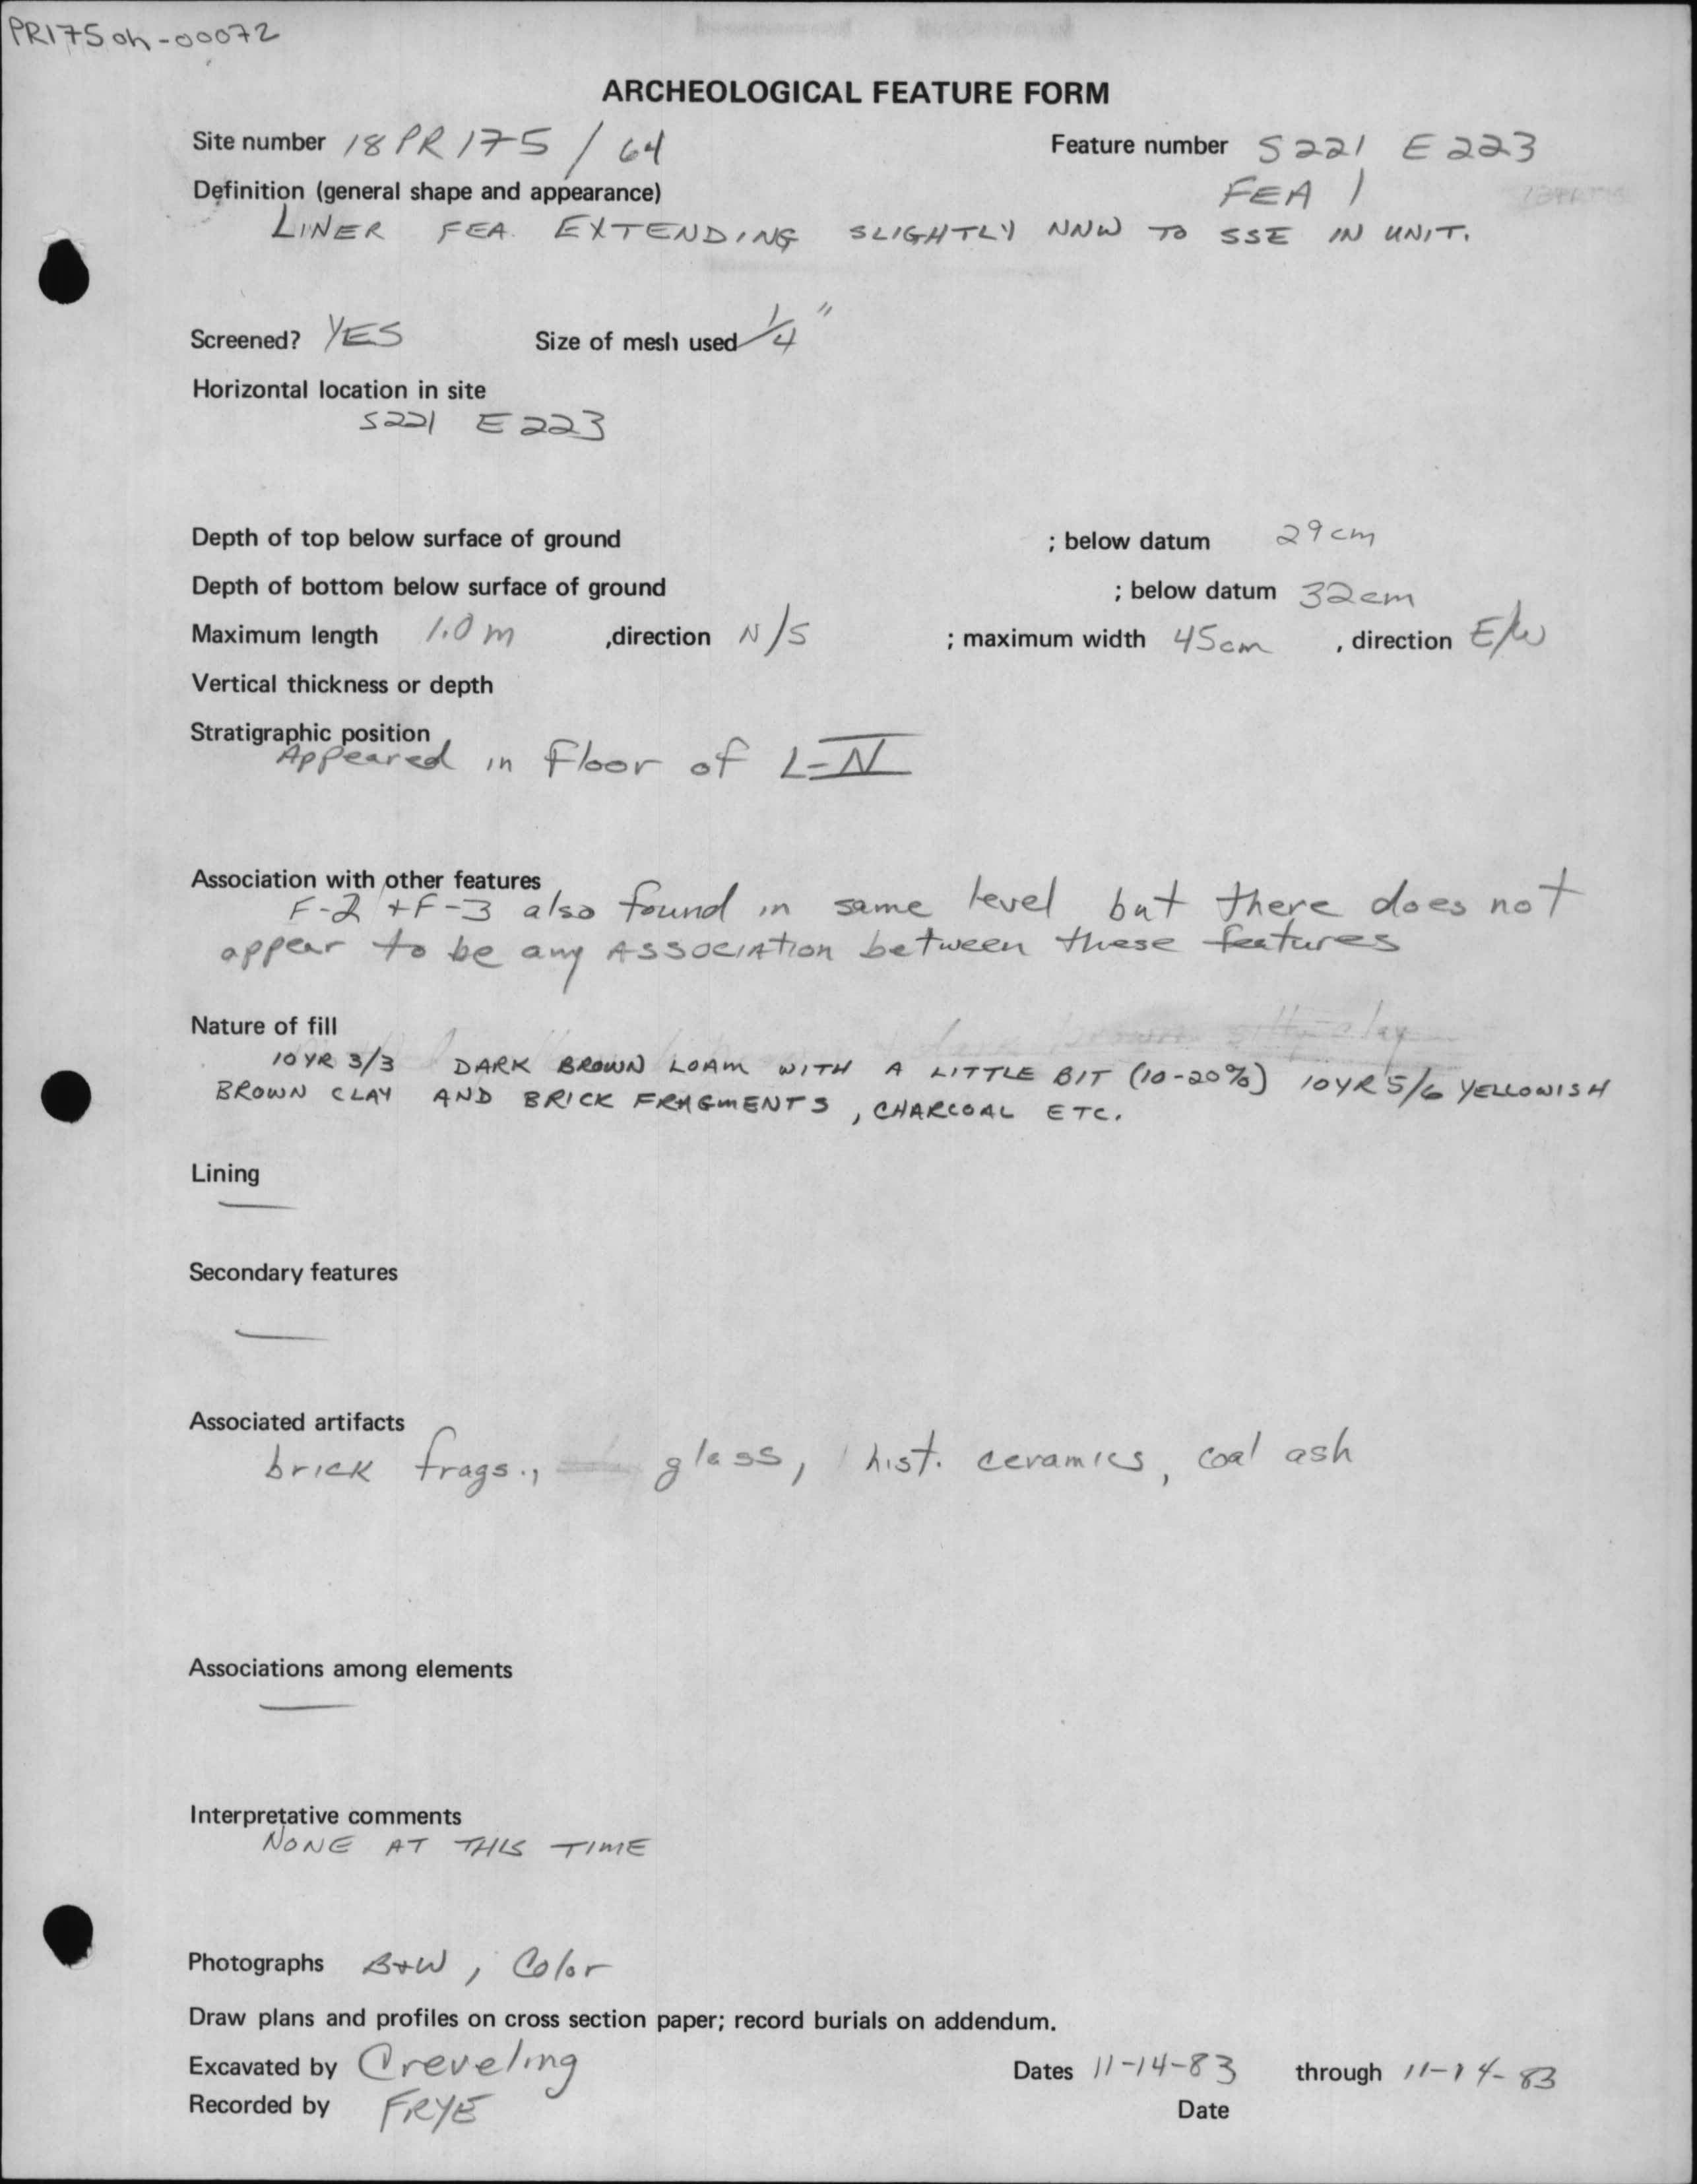 PR175 oh-00072
ARCHEOLOGICAL FEATURE FORM
Site number 18 PR 175 / 64 Feature number S221 E223
Definition (general shape and appearance) FEA 1
LINER FEA. EXTENDING SLIGHTLY NNW TO SSE IN UNIT.
Screened? YES Size of mesh used 1/4"
Horizontal location in site
S221 E223
Depth of top below surface of ground ; below datum 29cm
Depth of bottom below surface of ground ; below datum 32cm
Maximum length 1.0 m ,direction N/S ; maximum width 45cm , direction E/W
Vertical thickness or depth
Stratigraphic position
Appeared in floor of
Association with other features
F-2 + F-3 also found in same level but there does not
appear to be any ASSOCIATION between these features
Nature of fill
10YR 3/3 DARK BROWN LOAM WITH A LITTLE BIT (10-20%) 10YR 5/6 YELLOWISH
BROWN CLAY AND BRICK FRAGMENTS, CHARCOAL ETC.
Lining
Secondary features
Associated artifacts
brick frags., glass, hist. ceramics, coal ash
Associations among elements
Interpretative comments
NONE AT THIS TIME
Photographs B+W, Color
Draw plans and profiles on cross section paper; record burials on addendum.
Excavated by Creveling Dates 11-14-83 through 11-14-83
Recorded by FRYE Date